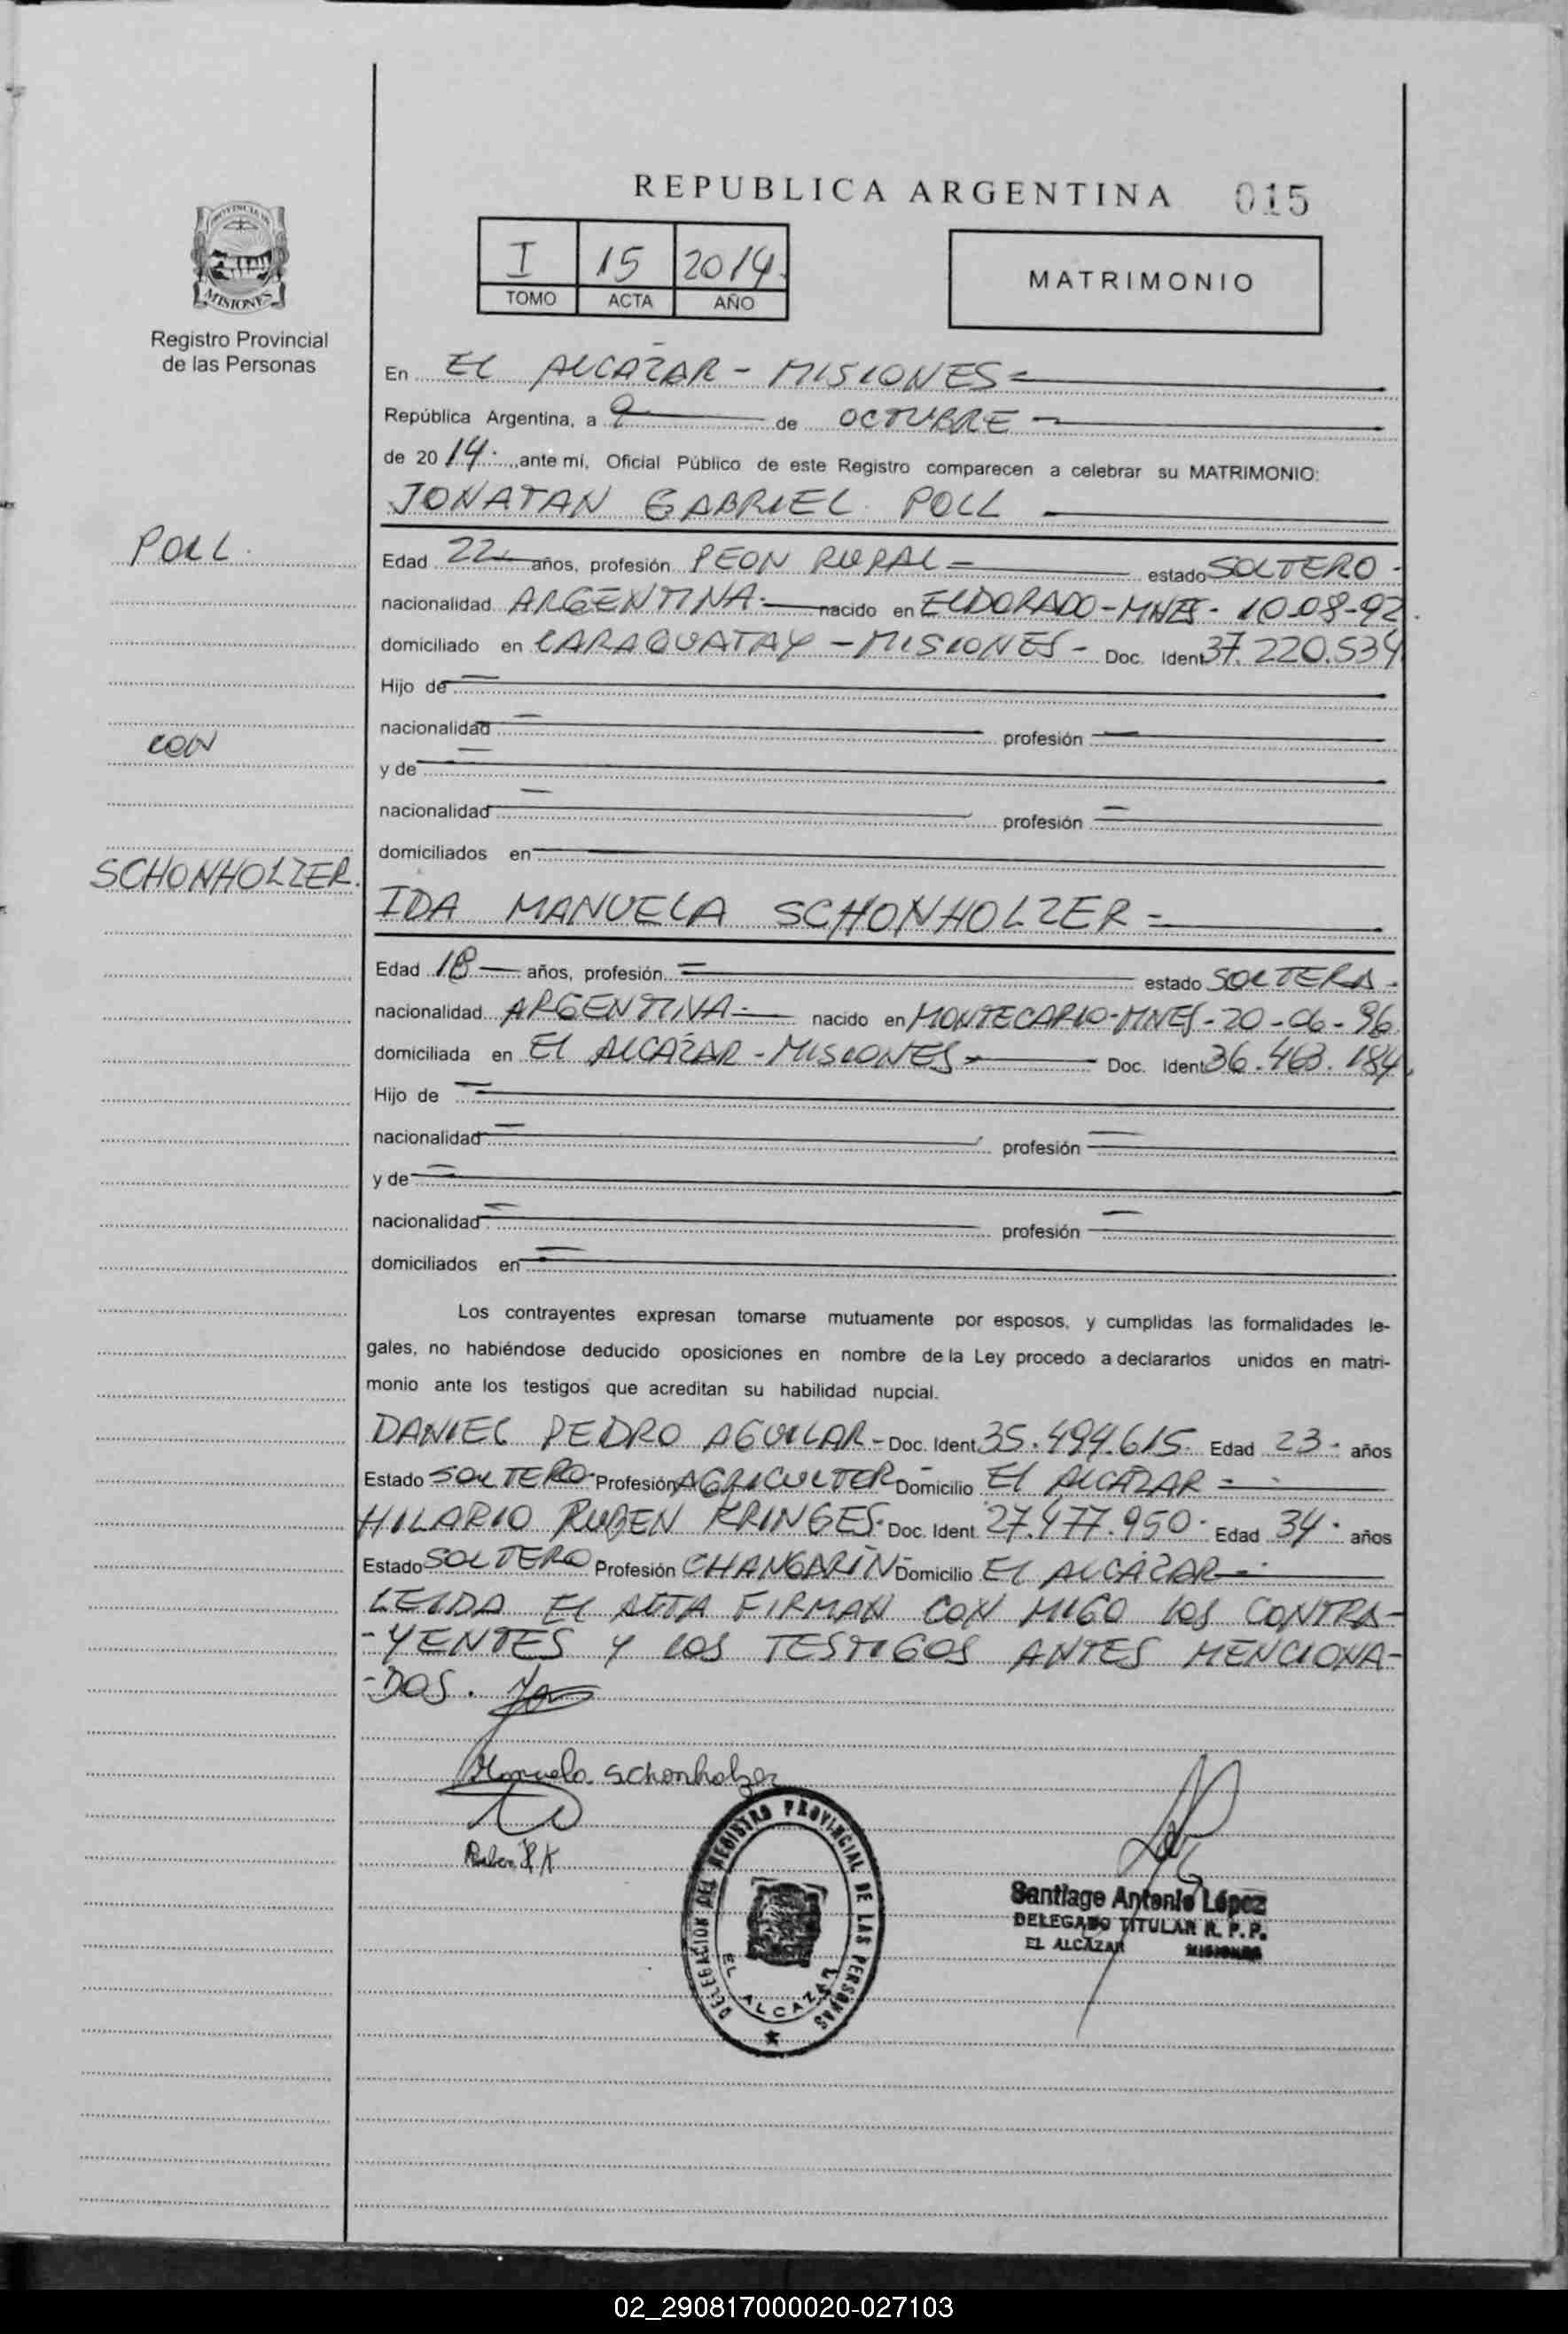 REPUBLICA ARGENTINA 015
PROVINCIA DE
MISIONES
Registro Provincial
de las Personas
I 15 2014
TOMO ACTA AÑO
MATRIMONIO
En EL ALCAZAR - MISIONES =
República Argentina, a 9 de OCTUBRE -
de 2014. ante mí, Oficial Público de este Registro comparecen a celebrar su MATRIMONIO:
JONATAN GABRIEL POLL
POLL.
Edad 22 años, profesión PEON RURAL = estado SOLTERO -
nacionalidad ARGENTINA. nacido en ELDORADO - MNES - 10-08-92.
domiciliado en CARAGUATAY - MISIONES - Doc. Ident 37.220.534
Hijo de =
nacionalidad = profesión =
CON
y de =
nacionalidad = profesión =
domiciliados en
SCHONHOLZER.
IDA MANUELA SCHONHOLZER =
Edad 18 años, profesión = estado SOLTERA -
nacionalidad ARGENTINA = nacido en MONTECARLO - MNES - 20-06-96
domiciliada en El ALCAZAR - MISIONES = Doc. Ident 36.463.184.
Hijo de =
nacionalidad = profesión =
y de =
nacionalidad = profesión =
domiciliados en =
Los contrayentes expresan tomarse mutuamente por esposos, y cumplidas las formalidades le-
gales, no habiéndose deducido oposiciones en nombre de la Ley procedo a declararlos unidos en matri-
monio ante los testigos que acreditan su habilidad nupcial.
DANIEL PEDRO AGUILAR - Doc. Ident. 35.494.615. Edad 23 - años
Estado SOLTERO. Profesión AGRICULTOR Domicilio El ALCAZAR =
HILARIO RUBEN KRINGES. Doc. Ident. 27.477.950. Edad 34. años
Estado SOLTERO Profesión CHANGARIN Domicilio El ALCAZAR
LEIDA El ACTA FIRMAN CON MIGO LOS CONTRA-
-YENTES Y LOS TESTIGOS ANTES MENCIONA-
-DOS.
Manuela Schonholzer
Ruben H K
DELEGACION DEL REGISTRO PROVINCIAL DE LAS PERSONAS
EL ALCAZAR
Santiago Antonio López
DELEGADO TITULAR R. P. P.
EL ALCAZAR MISIONES
02_290817000020-027103